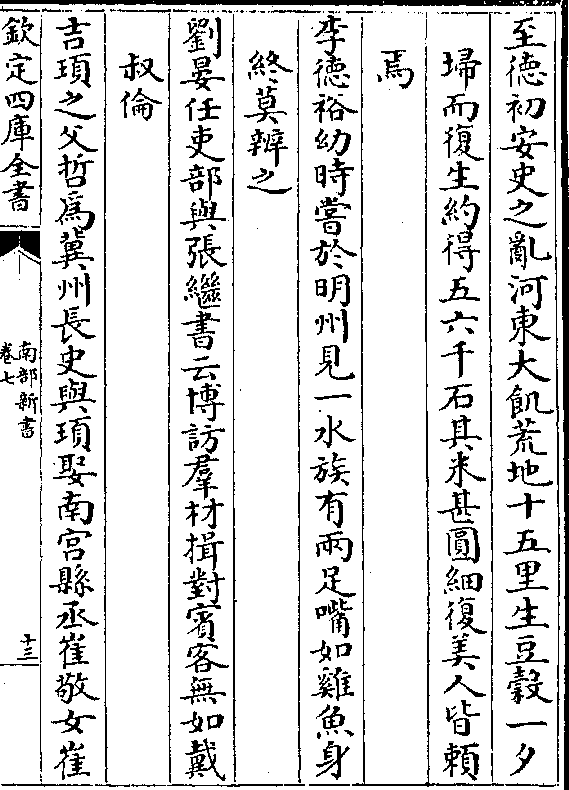 至徳初安史之亂河東大飢荒地十五里生豆榖一夕
埽而復生約得五六千石其米甚圓細復美人皆頼
焉
李徳裕幼時嘗於明州見一水族有兩足嘴如雞魚身
終莫辨之
劉晏任吏部與張繼書云博訪羣材揖對賓客無如戴
叔倫
吉頊之父哲爲冀州長史與頊娶南宫縣丞崔敬女崔
欽定四庫全書
南部新書
卷七
十三